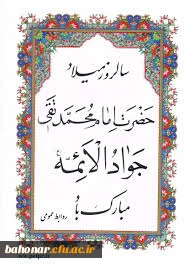 سالروز میلاد
حضرت امام محمد تقی
جواد الائمه
مبارک باد
روابط عمومی
bahonar.cfu.ac.ir